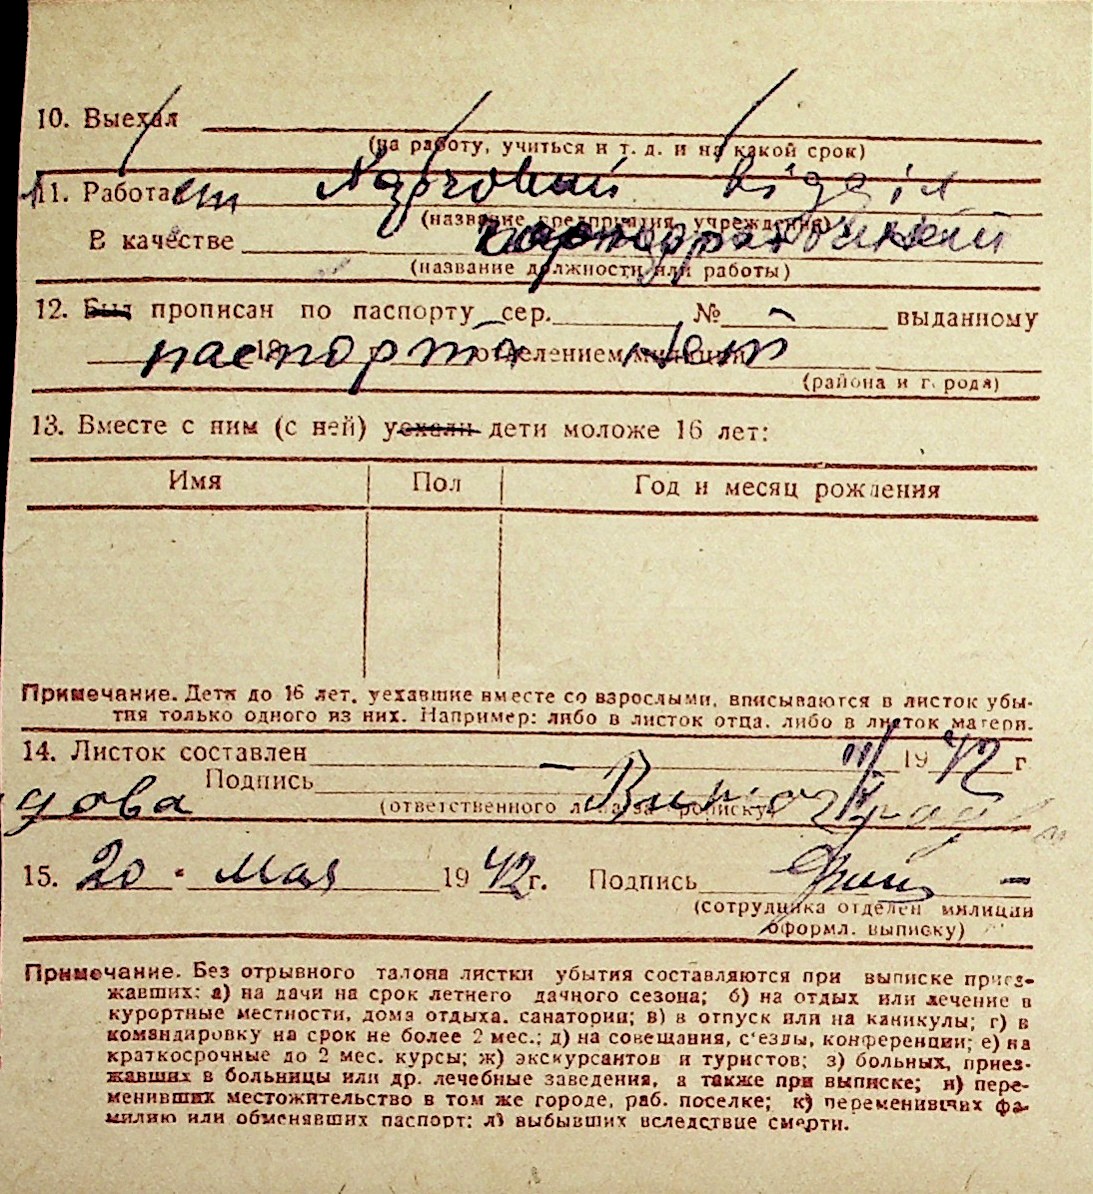 10. Выехал
(на работу, учиться и т. д. и на какой срок)
11. Работает Харковый відділ
(название предприятия, учреждения)
В качестве
(название должности или работы)
12. Был прописан по паспорту сер. № выданному
19 отделением милиции паспорта нет
(района и города)
13. Вместе с ним (с ней) уехали дети моложе 16 лет:
Имя Пол Год и месяц рождения
Примечание. Дети до 16 лет, уехавшие вместе со взрослыми, вписываются в листок убы-
тия только одного из них. Например: либо в листок отца, либо в листок матери.
14. Листок составлен — III 1942 г
Подпись Виноградова
(ответственного лица за прописку)
15. 20 • Мая 1942 г. Подпись
(сотрудника отделен милиции
оформл. выписку)
Примечание. Без отрывного талона листки убытия составляются при выписке приез-
жавших: а) на дачи на срок летнего дачного сезона; б) на отдых или лечение в
курортные местности, дома отдыха, санатории; в) в отпуск или на каникулы; г) в
командировку на срок не более 2 мес.; д) на совещания, с'езды, конференции; е) на
краткосрочные до 2 мес. курсы; ж) экскурсантов и туристов; з) больных, приез-
жавших в больницы или др. лечебные заведения, а также при выписке; и) пере-
менивших местожительство в том же городе, раб. поселке; к) переменивших фа-
милию или обменявших паспорт; л) выбывших вследствие смерти.